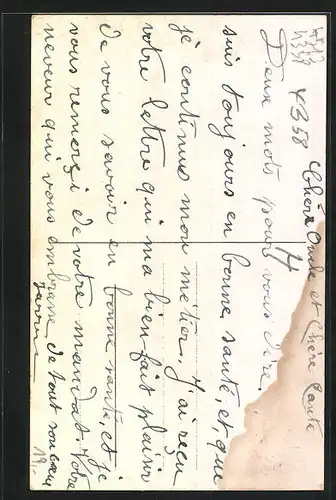 Chère Oncle et Chère Tante
Deux mots pour vous dire,
suis toujours en bonne santé, et que
je continue mon métier. J'ai reçu
votre lettre qui ma bien fait plaisir
de vous savoir en bonne santé, et je
vous remerçi de votre mandat. Votre
neveux qui vous embrasse de tout son cœur
4358
19,-